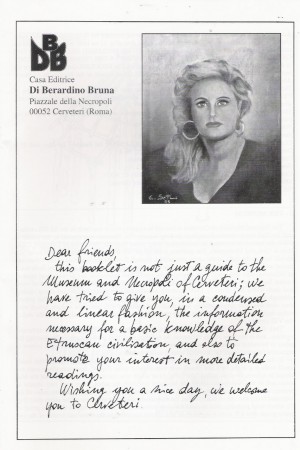 B
DDB
Casa Editrice
Di Berardino Bruna
Piazzale della Necropoli
00052 Cerveteri (Roma)
Dear friends,
this booklet is not just a guide to the
Museum and Necropoli of Cerveteri; we
have tried to give you, in a condensed
and linear fashion, the information
necessary for a basic knowledge of the
Etruscan civilisation, and also to
promote your interest in more detailed
readings.
Wishing you a nice day, we welcome
you to Cerveteri.